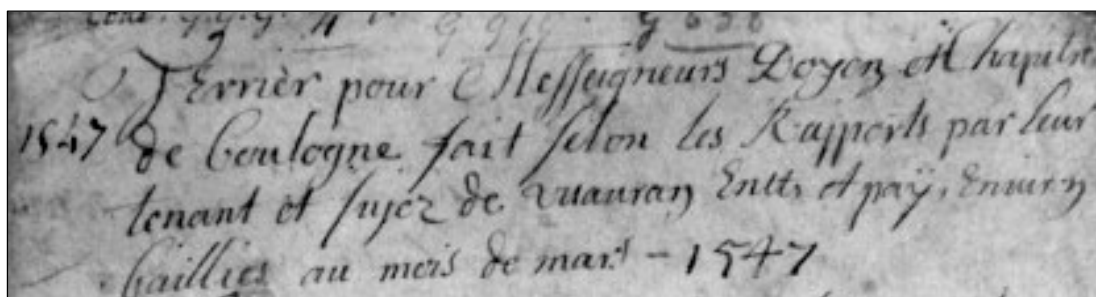 Terrier pour Messeigneurs Doyen et Chapitre
1547 de boulogne fait selon les Rapports par leur
tenant et sujez de et paÿs
baillies au mois de mars - 1547